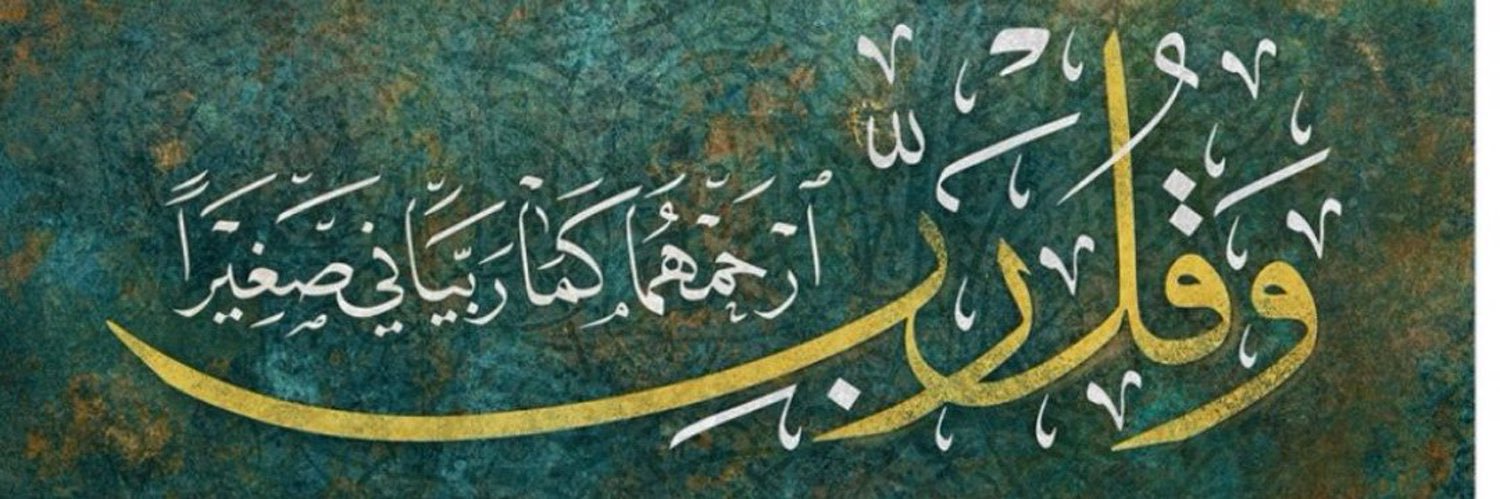 وَقُل رَّبِّ
ٱرْحَمْهُمَا كَمَا رَبَّيَانِي صَغِيرًا